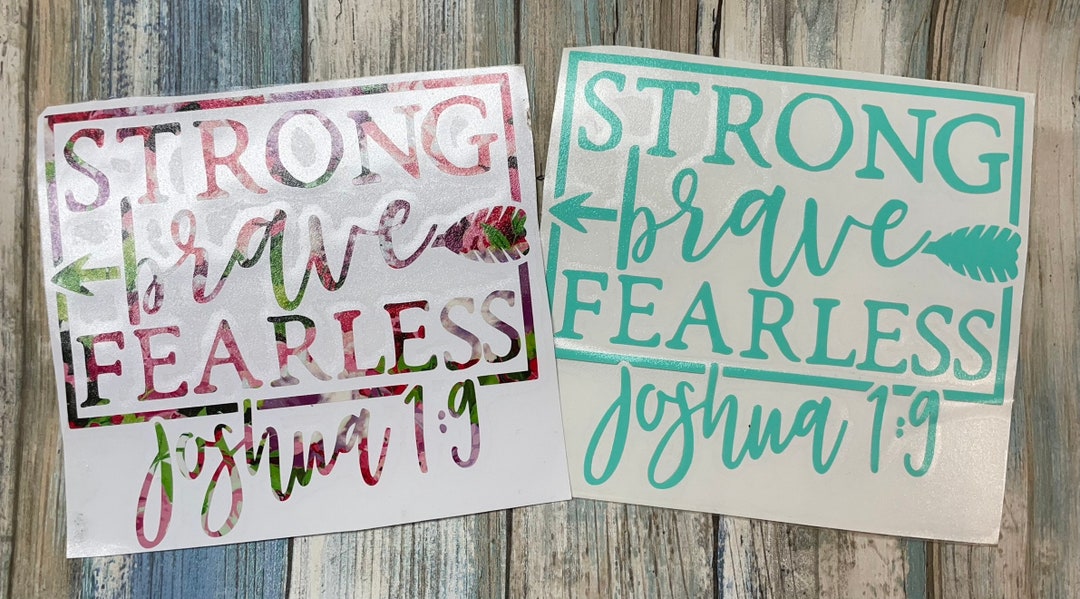 STRONG
brave
FEARLESS
Joshua 1:9
STRONG
brave
FEARLESS
Joshua 1:9